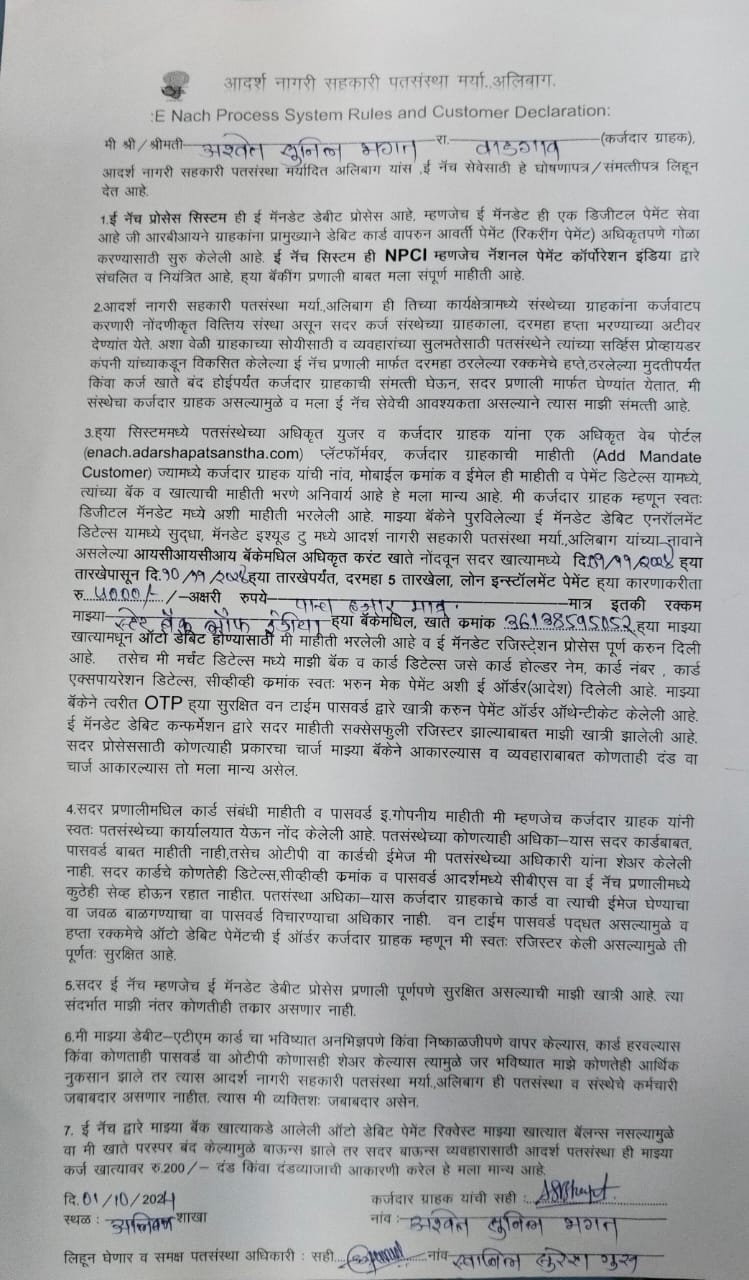 आदर्श नागरी सहकारी पतसंस्था मर्या.,अलिबाग.
:E Nach Process System Rules and Customer Declaration:
मी श्री/श्रीमती सुनिल भगत रा. वाडगाव (कर्जदार ग्राहक),
आदर्श नागरी सहकारी पतसंस्था मर्यादित अलिबाग यांस ,ई नॅच सेवेसाठी हे घोषणापत्र/संमत्तीपत्र लिहून
देत आहे.
1.ई नॅच प्रोसेस सिस्टम ही ई मॅनडेट डेबीट प्रोसेस आहे, म्हणजेच ई मॅनडेट ही एक डिजीटल पेमेंट सेवा
आहे जी आरबीआयने ग्राहकांना प्रामुख्याने डेबिट कार्ड वापरुन आवर्ती पेमेंट (रिकरींग पेमेंट) अधिकृतपणे गोळा
करण्यासाठी सुरु केलेली आहे. ई नॅच सिस्टम ही NPCI म्हणजेच नॅशनल पेमेंट कॉर्पोरेशन इंडिया द्वारे
संचलित व नियंत्रित आहे, हया बॅकींग प्रणाली बाबत मला संपूर्ण माहीती आहे.
2.आदर्श नागरी सहकारी पतसंस्था मर्या.,अलिबाग ही तिच्या कार्यक्षेत्रामध्ये संस्थेच्या ग्राहकांना कर्जवाटप
करणारी नोंदणीकृत वित्तिय संस्था असून सदर कर्ज संस्थेच्या ग्राहकाला, दरमहा हप्ता भरण्याच्या अटीवर
देण्यांत येते. अशा वेळी ग्राहकाच्या सोयीसाठी व व्यवहारांच्या सुलभतेसाठी पतसंस्थेने त्यांच्या सर्व्हिस प्रोव्हायडर
कंपनी यांच्याकडून विकसित केलेल्या ई नॅच प्रणाली मार्फत दरमहा ठरलेल्या रक्कमेचे हप्ते,ठरलेल्या मुदतीपर्यंत
किंवा कर्ज खाते बंद होईपर्यंत कर्जदार ग्राहकाची संमत्ती घेऊन, सदर प्रणाली मार्फत घेण्यांत येतात, मी
संस्थेचा कर्जदार ग्राहक असल्यामुळे व मला ई नॅच सेवेची आवश्यकता असल्याने त्यास माझी संमत्ती आहे.
3.हया सिस्टममध्ये पतसंस्थेच्या अधिकृत युजर व कर्जदार ग्राहक यांना एक अधिकृत वेब पोर्टल
(enach.adarshapatsanstha.com) प्लॅटफॉर्मवर, कर्जदार ग्राहकाची माहीती (Add Mandate
Customer) ज्यामध्ये कर्जदार ग्राहक यांची नांव, मोबाईल क्रमांक व ईमेल ही माहीती व पेमेंट डिटेल्स यामध्ये,
त्यांच्या बॅक व खात्याची माहीती भरणे अनिवार्य आहे हे मला मान्य आहे. मी कर्जदार ग्राहक म्हणून स्वतः
डिजीटल मॅनडेट मध्ये अशी माहीती भरलेली आहे. माझ्या बॅकेने पुरविलेल्या ई मॅनडेट डेबिट एनरॉलमेंट
डिटेल्स यामध्ये सुद्धा, मॅनडेट इश्यूड टु मध्ये आदर्श नागरी सहकारी पतसंस्था मर्या.,अलिबाग यांच्या-नावाने
असलेल्या आयसीआयसीआय बॅकेमधिल अधिकृत करंट खाते नोंदवून सदर खात्यामध्ये दि. हया
तारखेपासून दि. हया तारखेपर्यंत, दरमहा 5 तारखेला, लोन इन्स्टॉलमेंट पेमेंट हया कारणाकरीता
रु ५०००/- /-अक्षरी रुपये- पाच हजार मात्र. मात्र इतकी रक्कम
माझ्या स्टेट बँक ऑफ इंडिया हया बॅकेमधिल, खाते कमांक 36138595052 हया माझ्या
खात्यामधून ऑटो डेबिट होण्यासाठी मी माहीती भरलेली आहे व ई मॅनडेट रजिस्ट्रेशन प्रोसेस पूर्ण करुन दिली
आहे. तसेच मी मर्चंट डिटेल्स मध्ये माझी बॅक व कार्ड डिटेल्स जसे कार्ड होल्डर नेम, कार्ड नंबर , कार्ड
एक्सपायरेशन डिटेल्स, सीव्हीव्ही क्रमांक स्वतः भरुन मेक पेमेंट अशी ई ऑर्डर(आदेश) दिलेली आहे. माझ्या
बॅकेने त्वरीत OTP हया सुरक्षित वन टाईम पासवर्ड द्वारे खात्री करुन पेमेंट ऑर्डर ऑथेन्टीकेट केलेली आहे.
ई मॅनडेट डेबिट कन्फर्मेशन द्वारे सदर माहीती सक्सेसफुली रजिस्टर झाल्याबाबत माझी खात्री झालेली आहे.
सदर प्रोसेससाठी कोणत्याही प्रकारचा चार्ज माझ्या बॅकेने आकारल्यास व व्यवहाराबाबत कोणताही दंड वा
चार्ज आकारल्यास तो मला मान्य असेल.
4.सदर प्रणालीमधिल कार्ड संबंधी माहीती व पासवर्ड इ.गोपनीय माहीती मी म्हणजेच कर्जदार ग्राहक यांनी
स्वतः पतसंस्थेच्या कार्यालयात येऊन नोंद केलेली आहे. पतसंस्थेच्या कोणत्याही अधिका-यास सदर कार्डबाबत,
पासवर्ड बाबत माहीती नाही,तसेच ओटीपी वा कार्डची ईमेज मी पतसंस्थेच्या अधिकारी यांना शेअर केलेली
नाही. सदर कार्डचे कोणतेही डिटेल्स,सीव्हीव्ही क्रमांक व पासवर्ड आदर्शमध्ये सीबीएस वा ई नॅच प्रणालीमध्ये
कुठेही सेव्ह होऊन रहात नाहीत. पतसंस्था अधिका-यास कर्जदार ग्राहकाचे कार्ड वा त्याची ईमेज घेण्याचा
वा जवळ बाळगण्याचा वा पासवर्ड विचारण्याचा अधिकार नाही. वन टाईम पासवर्ड पद्धत असल्यामुळे व
हप्ता रक्कमेचे ऑटो डेबिट पेमेंटची ई ऑर्डर कर्जदार ग्राहक म्हणून मी स्वतः रजिस्टर केली असल्यामुळे ती
पूर्णतः सुरक्षित आहे.
5.सदर ई नॅच म्हणजेच ई मॅनडेट डेबीट प्रोसेस प्रणाली पूर्णपणे सुरक्षित असल्याची माझी खात्री आहे. त्या
संदर्भात माझी नंतर कोणतीही तकार असणार नाही.
6.मी माझ्या डेबीट-एटीएम कार्ड चा भविष्यात अनभिज्ञपणे किंवा निष्काळजीपणे वापर केल्यास, कार्ड हरवल्यास
किंवा कोणताही पासवर्ड वा ओटीपी कोणासही शेअर केल्यास त्यामुळे जर भविष्यात माझे कोणतेही आर्थिक
नुकसान झाले तर त्यास आदर्श नागरी सहकारी पतसंस्था मर्या.,अलिबाग ही पतसंस्था व संस्थेचे कर्मचारी
जबाबदार असणार नाहीत. त्यास मी व्यक्तिशः जबाबदार असेन.
7. ई नॅच द्वारे माझ्या बॅक खात्याकडे आलेली ऑटो डेबिट पेमेंट रिक्वेस्ट माझ्या खात्यात बॅलन्स नसल्यामुळे
वा मी खाते परस्पर बंद केल्यामुळे बाऊन्स झाले तर सदर बाऊन्स व्यवहारासाठी आदर्श पतसंस्था ही माझ्या
कर्ज खात्यावर रु.200/- दंड किंवा दंडव्याजाची आकारणी करेल हे मला मान्य आहे.
दि. 01/10/2024 कर्जदार ग्राहक यांची सही :
स्थळ : शाखा नांव : सुनिल भगत
लिहून घेणार व समक्ष पतसंस्था अधिकारी : सही नांव स्वप्निल सुरेश